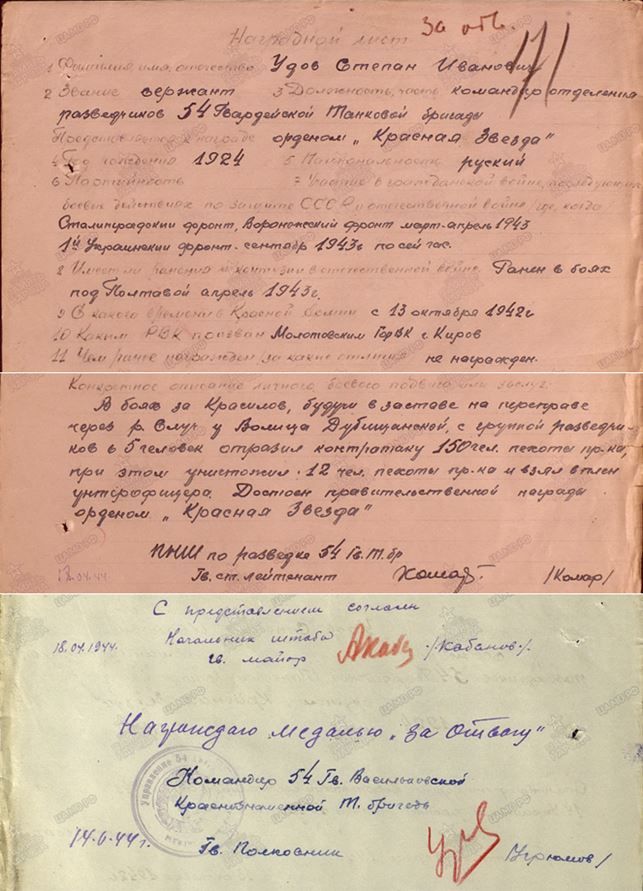 Наградной лист
За отв.
1 Фамилия, имя, отчество Удов Степан Иванович
2 Звание сержант 3 Должность, часть командир отделения
разведчиков 54 Гвардейской Танковой бригады
Представляется к награде орденом „Красная Звезда"
4 Год рождения 1924 5 Национальность руский
6 Партийность 7 Участие в гражданской войне, последующих
боевых действиях по защите СССР и отечественной войне /где, когда
Сталинградский фронт, Воронежский фронт март-апрель 1943
1й Украинский фронт - сентябрь 1943г по сей час.
8 Имеет ли ранения и контузии в отечественной войне Ранен в боях
под Полтавой апрель 1943г.
9 С какого времени в Красной Армии с 13 октября 1942г
10 Каким РВК призван Молотовским ГорВК г. Киров
11 Чем ранее награжден /за какие отличия не награжден.
Конкретное описание личного, боевого подвига или заслуг:
В боях за Красилов, будучи в заставе на переправе
через р. Случ у Волица Дублищанской, с группой разведчи-
ков в 5 человек отразил контратаку 150 чел. пехоты пр-ка,
при этом уничтожил 12 чел. пехоты пр-ка и взял в плен
унтерофицера. Достоен правительственной награды
орденом „Красная Звезда"
ПНШ по разведке 54 Гв.Т.бр
18.04.44. Гв. ст. лейтенант /Комар/
С представлением согласен
18.04.1944. Начальник штаба
гв. майор /Кабанов/.
Награждаю медалью „За Отвагу"
Управление 54
Командир 54 Гв. Васильковской
Краснознаменной Т. бригады
Гв. Полковник /Угрюмов/